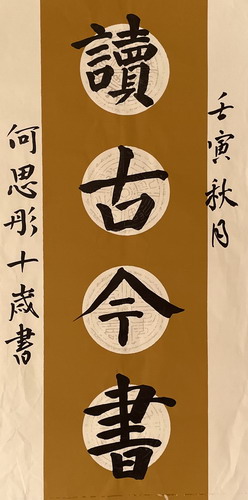 壬寅秋月
讀古今書
何思彤十歲書